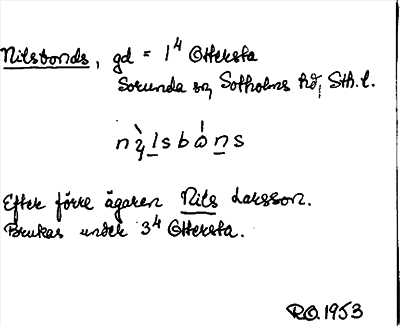 Nilsbonds, gd = 1⁴ Ottersta
Sorunda sn, Sotholms hd, Sth. l.
Efter förre ägaren Nils Larsson.
Brukas under 3⁴ Ottersta.
R.O. 1953